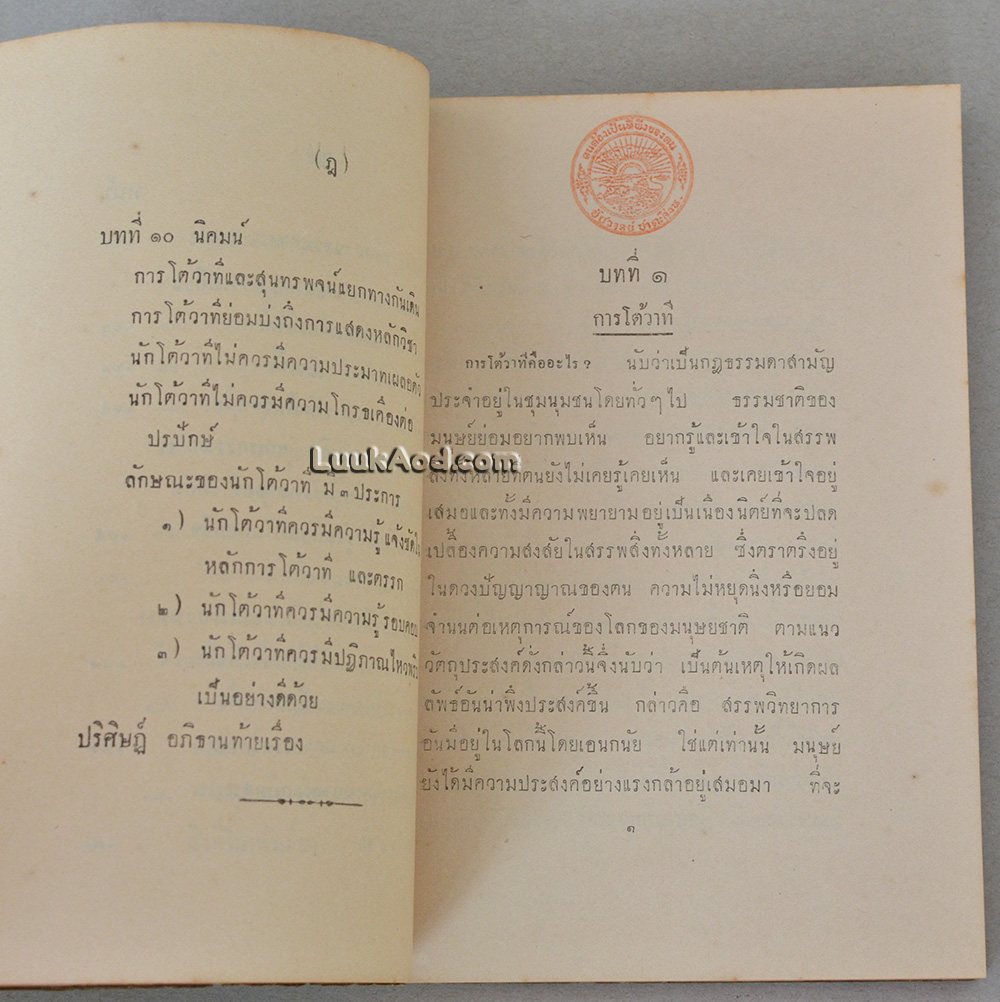 (ฎ)
บทที่ ๑๐ นิคมน์
การโต้วาทีและสุนทรพจน์แยกทางกันเดิน
การโต้วาทีย่อมบ่งถึงการแสดงหลักวิชา
นักโต้วาทีไม่ควรมีความประมาทเผลอตัว
นักโต้วาทีไม่ควรมีความโกรธเคืองต่อ
ปรปักษ์
ลักษณะของนักโต้วาที มี ๓ ประการ
๑) นักโต้วาทีควรมีความรู้แจ้งชัดใน
หลักการโต้วาที และตรรก
๒) นักโต้วาทีควรมีความรู้รอบคอบ
๓) นักโต้วาทีควรมีปฏิภาณไหวพริบ
เป็นอย่างดีด้วย
ปริศิษฎ์ อภิธานท้ายเรื่อง
LuukAod.com
ตนต้องเป็นที่พึ่งของตน
บทที่ ๑
การโต้วาที
การโต้วาทีคืออะไร ? นับว่าเป็นกฎธรรมดาสามัญ
ประจำอยู่ในชุมนุมชนโดยทั่วๆไป ธรรมชาติของ
มนุษย์ย่อมอยากพบเห็น อยากรู้และเข้าใจในสรรพ
สิ่งทั้งหลายที่ตนยังไม่เคยรู้เคยเห็น และเคยเข้าใจอยู่
เสมอและทั้งมีความพยายามอยู่เป็นเนืองนิตย์ที่จะปลด
เปลื้องความสงสัยในสรรพสิ่งทั้งหลาย ซึ่งตราตรึงอยู่
ในดวงปัญญาญาณของตน ความไม่หยุดนิ่งหรือยอม
จำนนต่อเหตุการณ์ของโลกของมนุษยชาติ ตามแนว
วัตถุประสงค์ดั่งกล่าวนี้จึ่งนับว่า เป็นต้นเหตุให้เกิดผล
ลัพธ์อันน่าพึงประสงค์ขึ้น กล่าวคือ สรรพวิทยาการ
อันมีอยู่ในโลกนี้โดยเอนกนัย ใช่แต่เท่านั้น มนุษย์
ยังได้มีความประสงค์อย่างแรงกล้าอยู่เสมอมา ที่จะ
๑